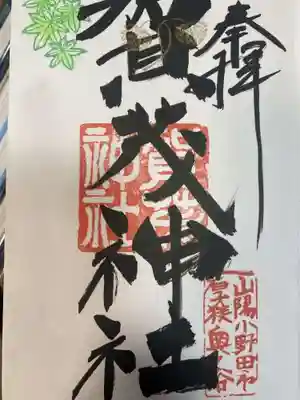 奉拝
賀茂神社
賀茂
神社
山陽小野田市